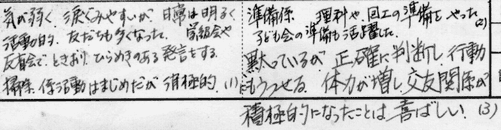 気が弱く、涙ぐみやすいが、日常は明るく
活動的。友だちも多くなった。学級会や
反省会で、ときおりひらめきのある発言をする。
掃除、係活動はまじめだが消極的。(1)
準備係 理科や、図工の準備をやった。(2)
子ども会の準備も活躍した。
黙っているが、正確に判断し、行動
にもうつせる。体力が増し、交友関係が
積極的になったことは喜ばしい。(3)